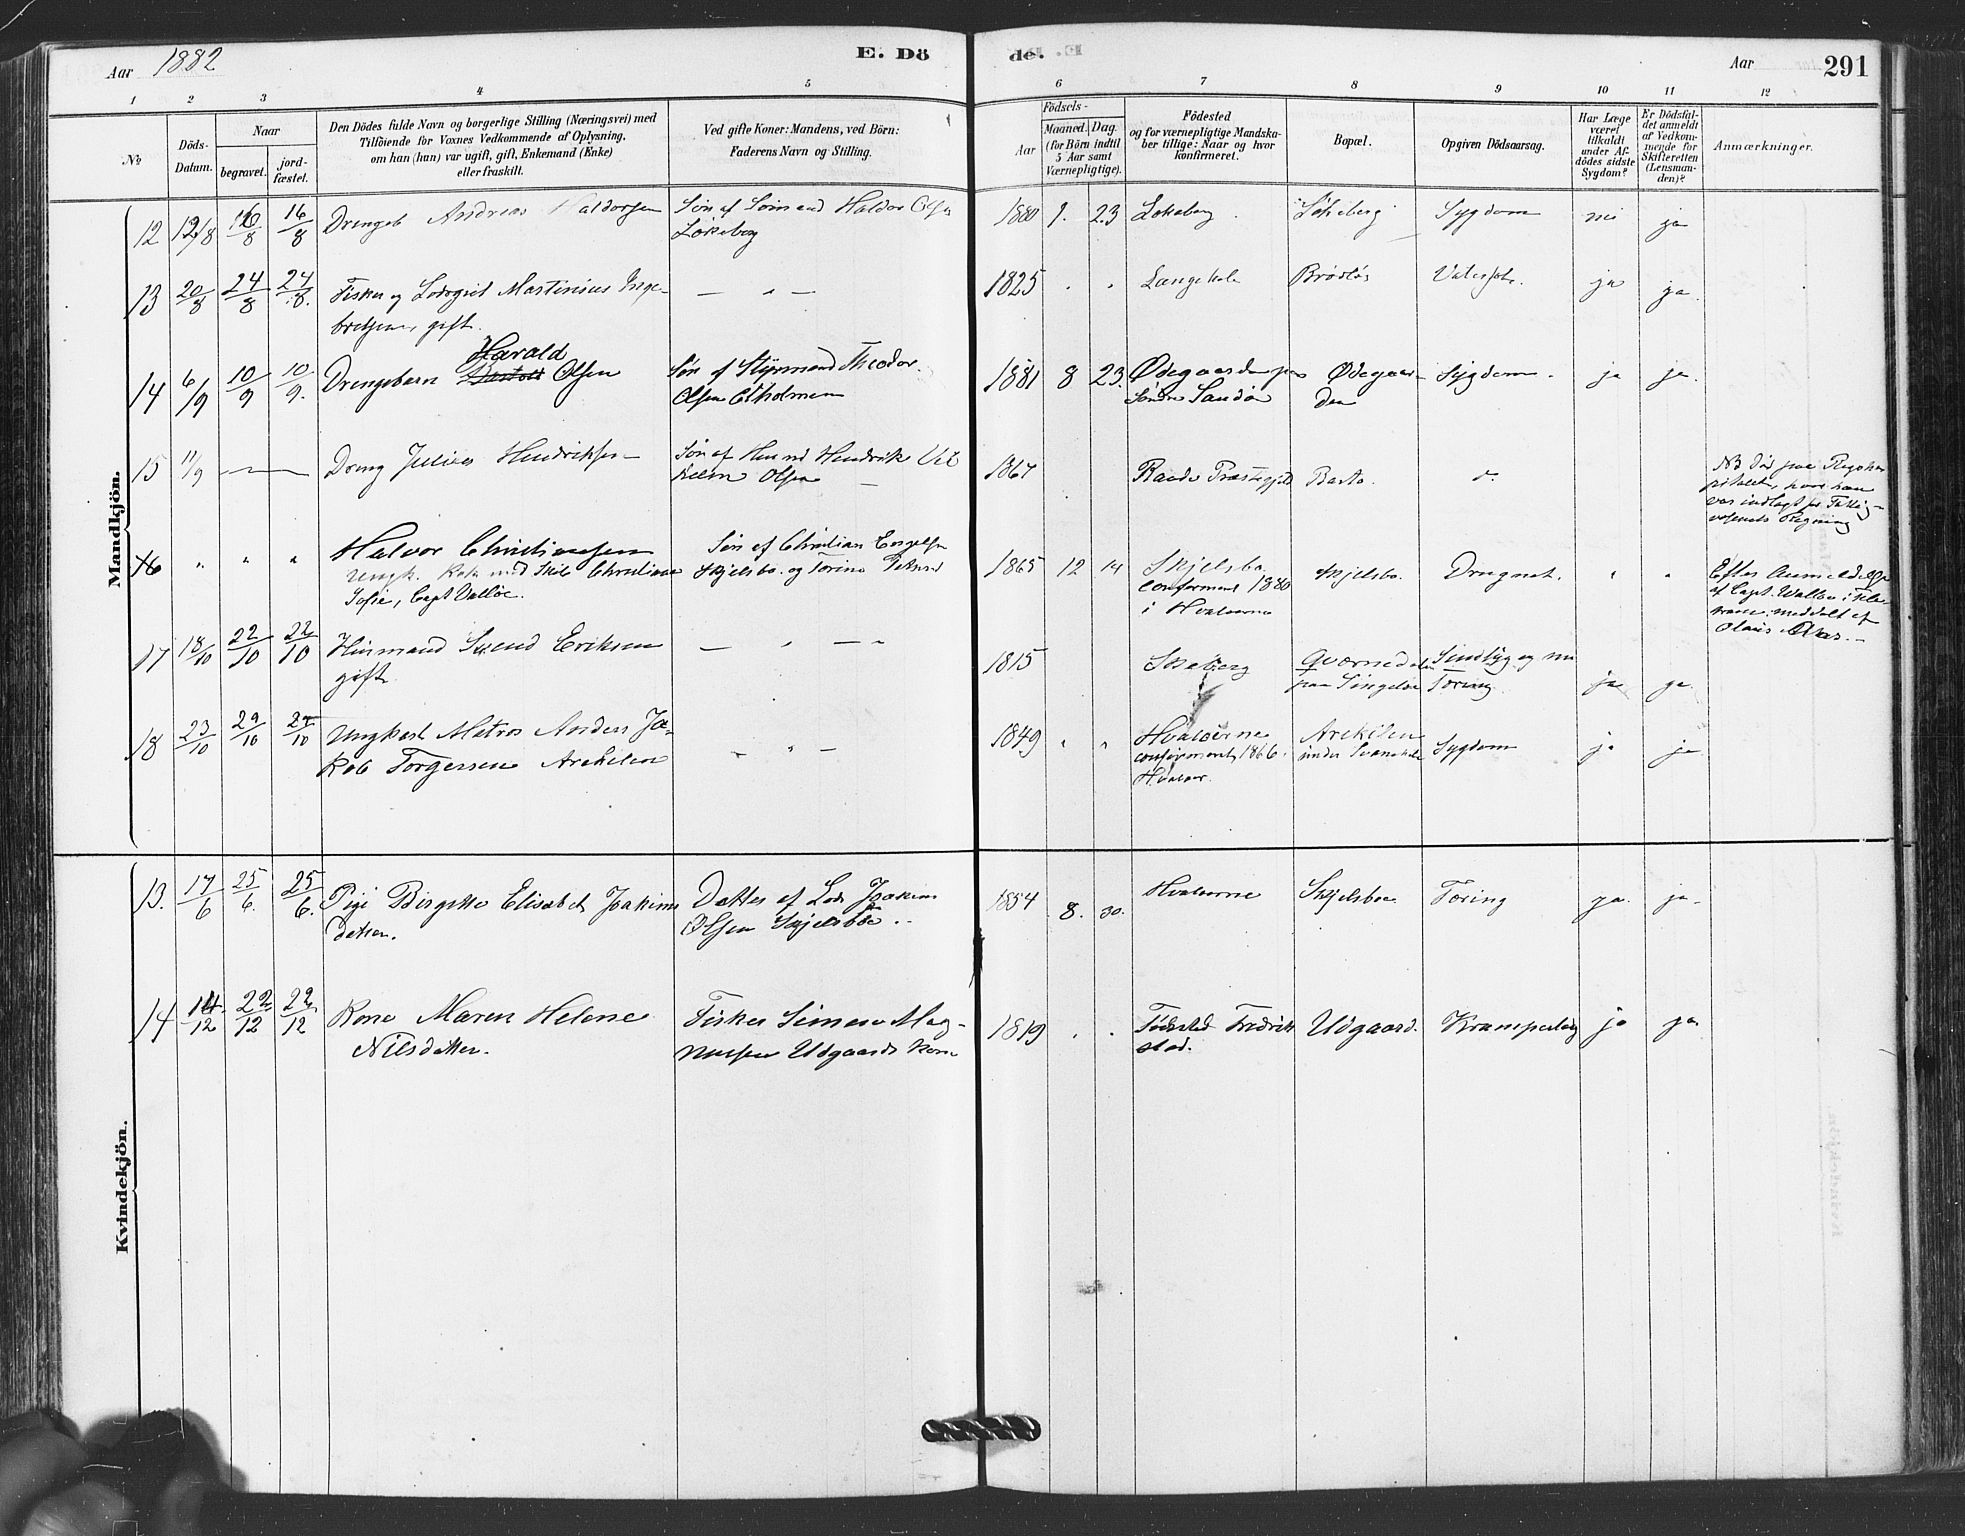 Aar 1882
E. Dö
de.
Aar
291
1
2
3
4
5
6
7
8
9
10
11
12
No
Döds-
Datum.
Naar
begravet.
jord-
fæstet.
Den Dödes fulde Navn og borgerlige Stilling (Næringsvei) med
Tilföiende for Voxnes Vedkommende af Oplysning,
om han (hun) var ugift, gift, Enkemand (Enke)
eller fraskilt.
Ved gifte Koner: Mandens, ved Börn:
Faderens Navn og Stilling.
Födsels-
Aar
Maaned. Dag.
(for Börn indtil
5 Aar samt
Værnepligtige).
Födested
og for værnepligtige Mandska-
ber tillige: Naar og hvor
konfirmeret.
Bopæl.
Opgiven Dödsaarsag.
Har Læge
været
tilkaldt
under Af-
dödes sidste
Sygdom?
Er Dödsfal-
det anmeldt
af Vedkom-
mende for
Skifteretten
(Lensman-
den)?
Anmærkninger.
Mandkjön.
12 12/8 16/8 16/8 Drengeb Andreas Haldorsen Søn af Sømand Haldor Olsen
Løkeberg
1880 9. 23 Løkeberg Løkeberg Sygdom nei ja
13 20/8 24/8 24/8. Fisker og Lodsgut Martinius Inge-
bretsen, gift.
— " —
1825 " " Langekil Brødløs ja ja.
14 6/9 10/9 10/9. Drengebarn Harald Olsen
Søn af Styrmand Theodor
Olsen Ødholmen
1881 8 23. Ødegaarden paa
Søndre Sandø
Ødegaar-
den
Sygdom. ja ja.
15 11/9 — Dreng Julius Hendriksen Søn af Husmd Hendrik Vil
helm Olsen
1867 Raade Præstegjeld Basto.
NB Død paa Rigshos
pitalet, hvor han
var indlagt for Fattig-
væsenets Regning
16 " " " Halvor Christiansen
Ungk. Kok med Skib Christiane
Sofie, Capt Valløe.
Søn af Christian Engelsen
Skjelsbo. og Torine Peters
1865 12 14 Skjelsbo
confirmeret 1880
i Hvaløerne
Skjelsbo. Druknet. " "
Efter Anmeldelse
af Capt. Walløe
meddelt af
Olaus
17 18/10 22/10 22/10 Husmand Svend Eriksen
gift.
— " — "
1815 Skeberg Qvernedalen
paa Singeløe
Sindsyg og nu
Tæring
ja ja.
18 23/10 29/10 29/10 Ungkarl Matros Anders Ja-
kob Torgersen Arekilen
— " —
1849 " " Hvaløerne
confirmeret 1866.
Hvaløer.
Arekilen
under
Sygdom ja ja.
Kvindekjön.
13. 17/6 25/6. 25/6. Pige Birgitte Elisabeth Joakims
datter.
Datter af Lods Joakim
Olsen Skjelsbøe.
1854 8. 30. Hvaløerne Skjelsboe Tæring ja. ja.
14 14/12 22/12 22/12 Kone Maren Helene
Nilsdatter.
Fisker Simen Mag-
nussen Udgaards Kone
1819 " " Födested Fredrik
stad.
Udgaard. ja ja.